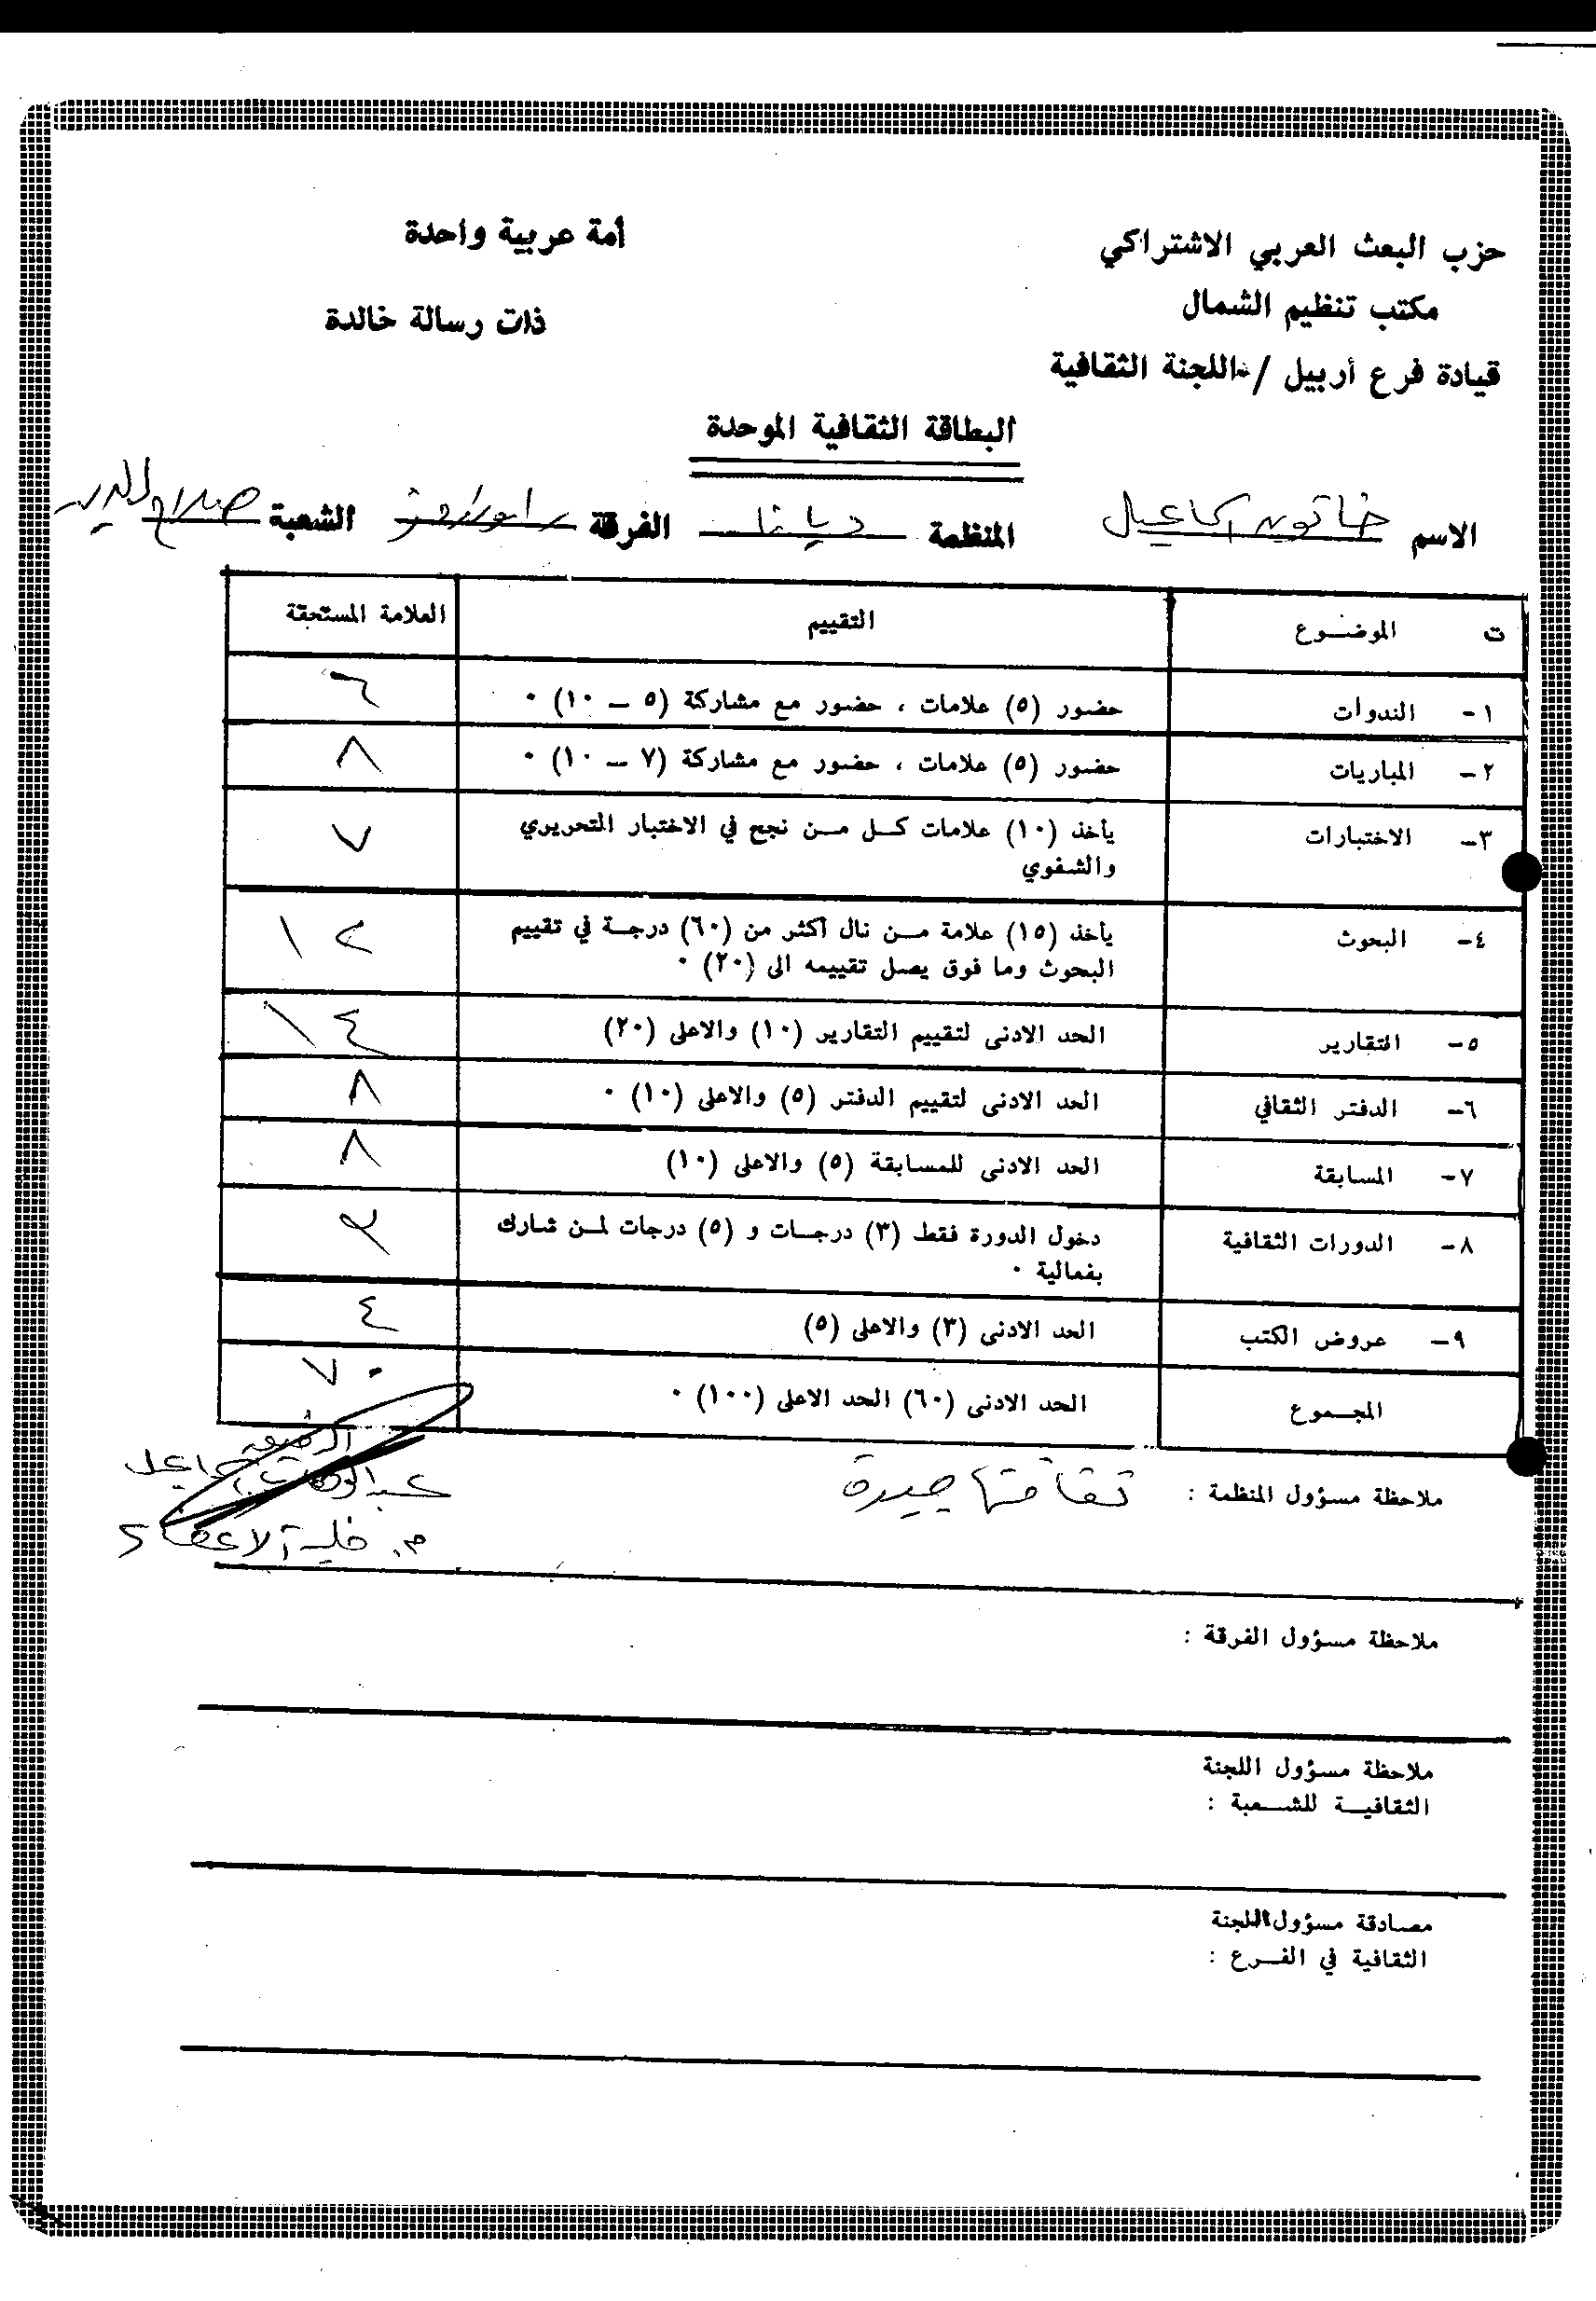 حزب البعث العربي الاشتراكي
أمة عربية واحدة
مكتب تنظيم الشمال
ذات رسالة خالدة
قيادة فرع أربيل / اللجنة الثقافية
البطاقة الثقافية الموحدة
الاسم خاتون اسماعيل المنظمة ديانا الفرقة راوندوز الشعبة صلاح الدين
ت الموضوع التقييم العلامة المستحقة
١- الندوات حضور (٥) علامات ، حضور مع مشاركة (٥ – ١٠) ٠ ٦
٢- المباريات حضور (٥) علامات ، حضور مع مشاركة (٧ – ١٠) ٠ ٨
٣- الاختبارات يأخذ (١٠) علامات كل من نجح في الاختبار التحريري ٧
والشفوي
٤- البحوث يأخذ (١٥) علامة من نال أكثر من (٦٠) درجة في تقييم ١٢
البحوث وما فوق يصل تقييمه الى (٢٠) ٠
٥- التقارير الحد الادنى لتقييم التقارير (١٠) والاعلى (٢٠) ١٤
٦- الدفتر الثقافي الحد الادنى لتقييم الدفتر (٥) والاعلى (١٠) ٠ ٨
٧- المسابقة الحد الادنى للمسابقة (٥) والاعلى (١٠) ٨
٨- الدورات الثقافية دخول الدورة فقط (٣) درجات و (٥) درجات لمن شارك ٣
بفعالية ٠
٩- عروض الكتب الحد الادنى (٣) والاعلى (٥) ٤
المجموع الحد الادنى (٦٠) الحد الاعلى (١٠٠) ٠ ٧٠
ملاحظة مسؤول المنظمة : ثقافتها جيدة
الرفيق
عبدالوهاب اسماعيل
م. خلية الاعضاء
ملاحظة مسؤول الفرقة :
ملاحظة مسؤول اللجنة
الثقافية للشعبة :
مصادقة مسؤول اللجنة
الثقافية في الفرع :